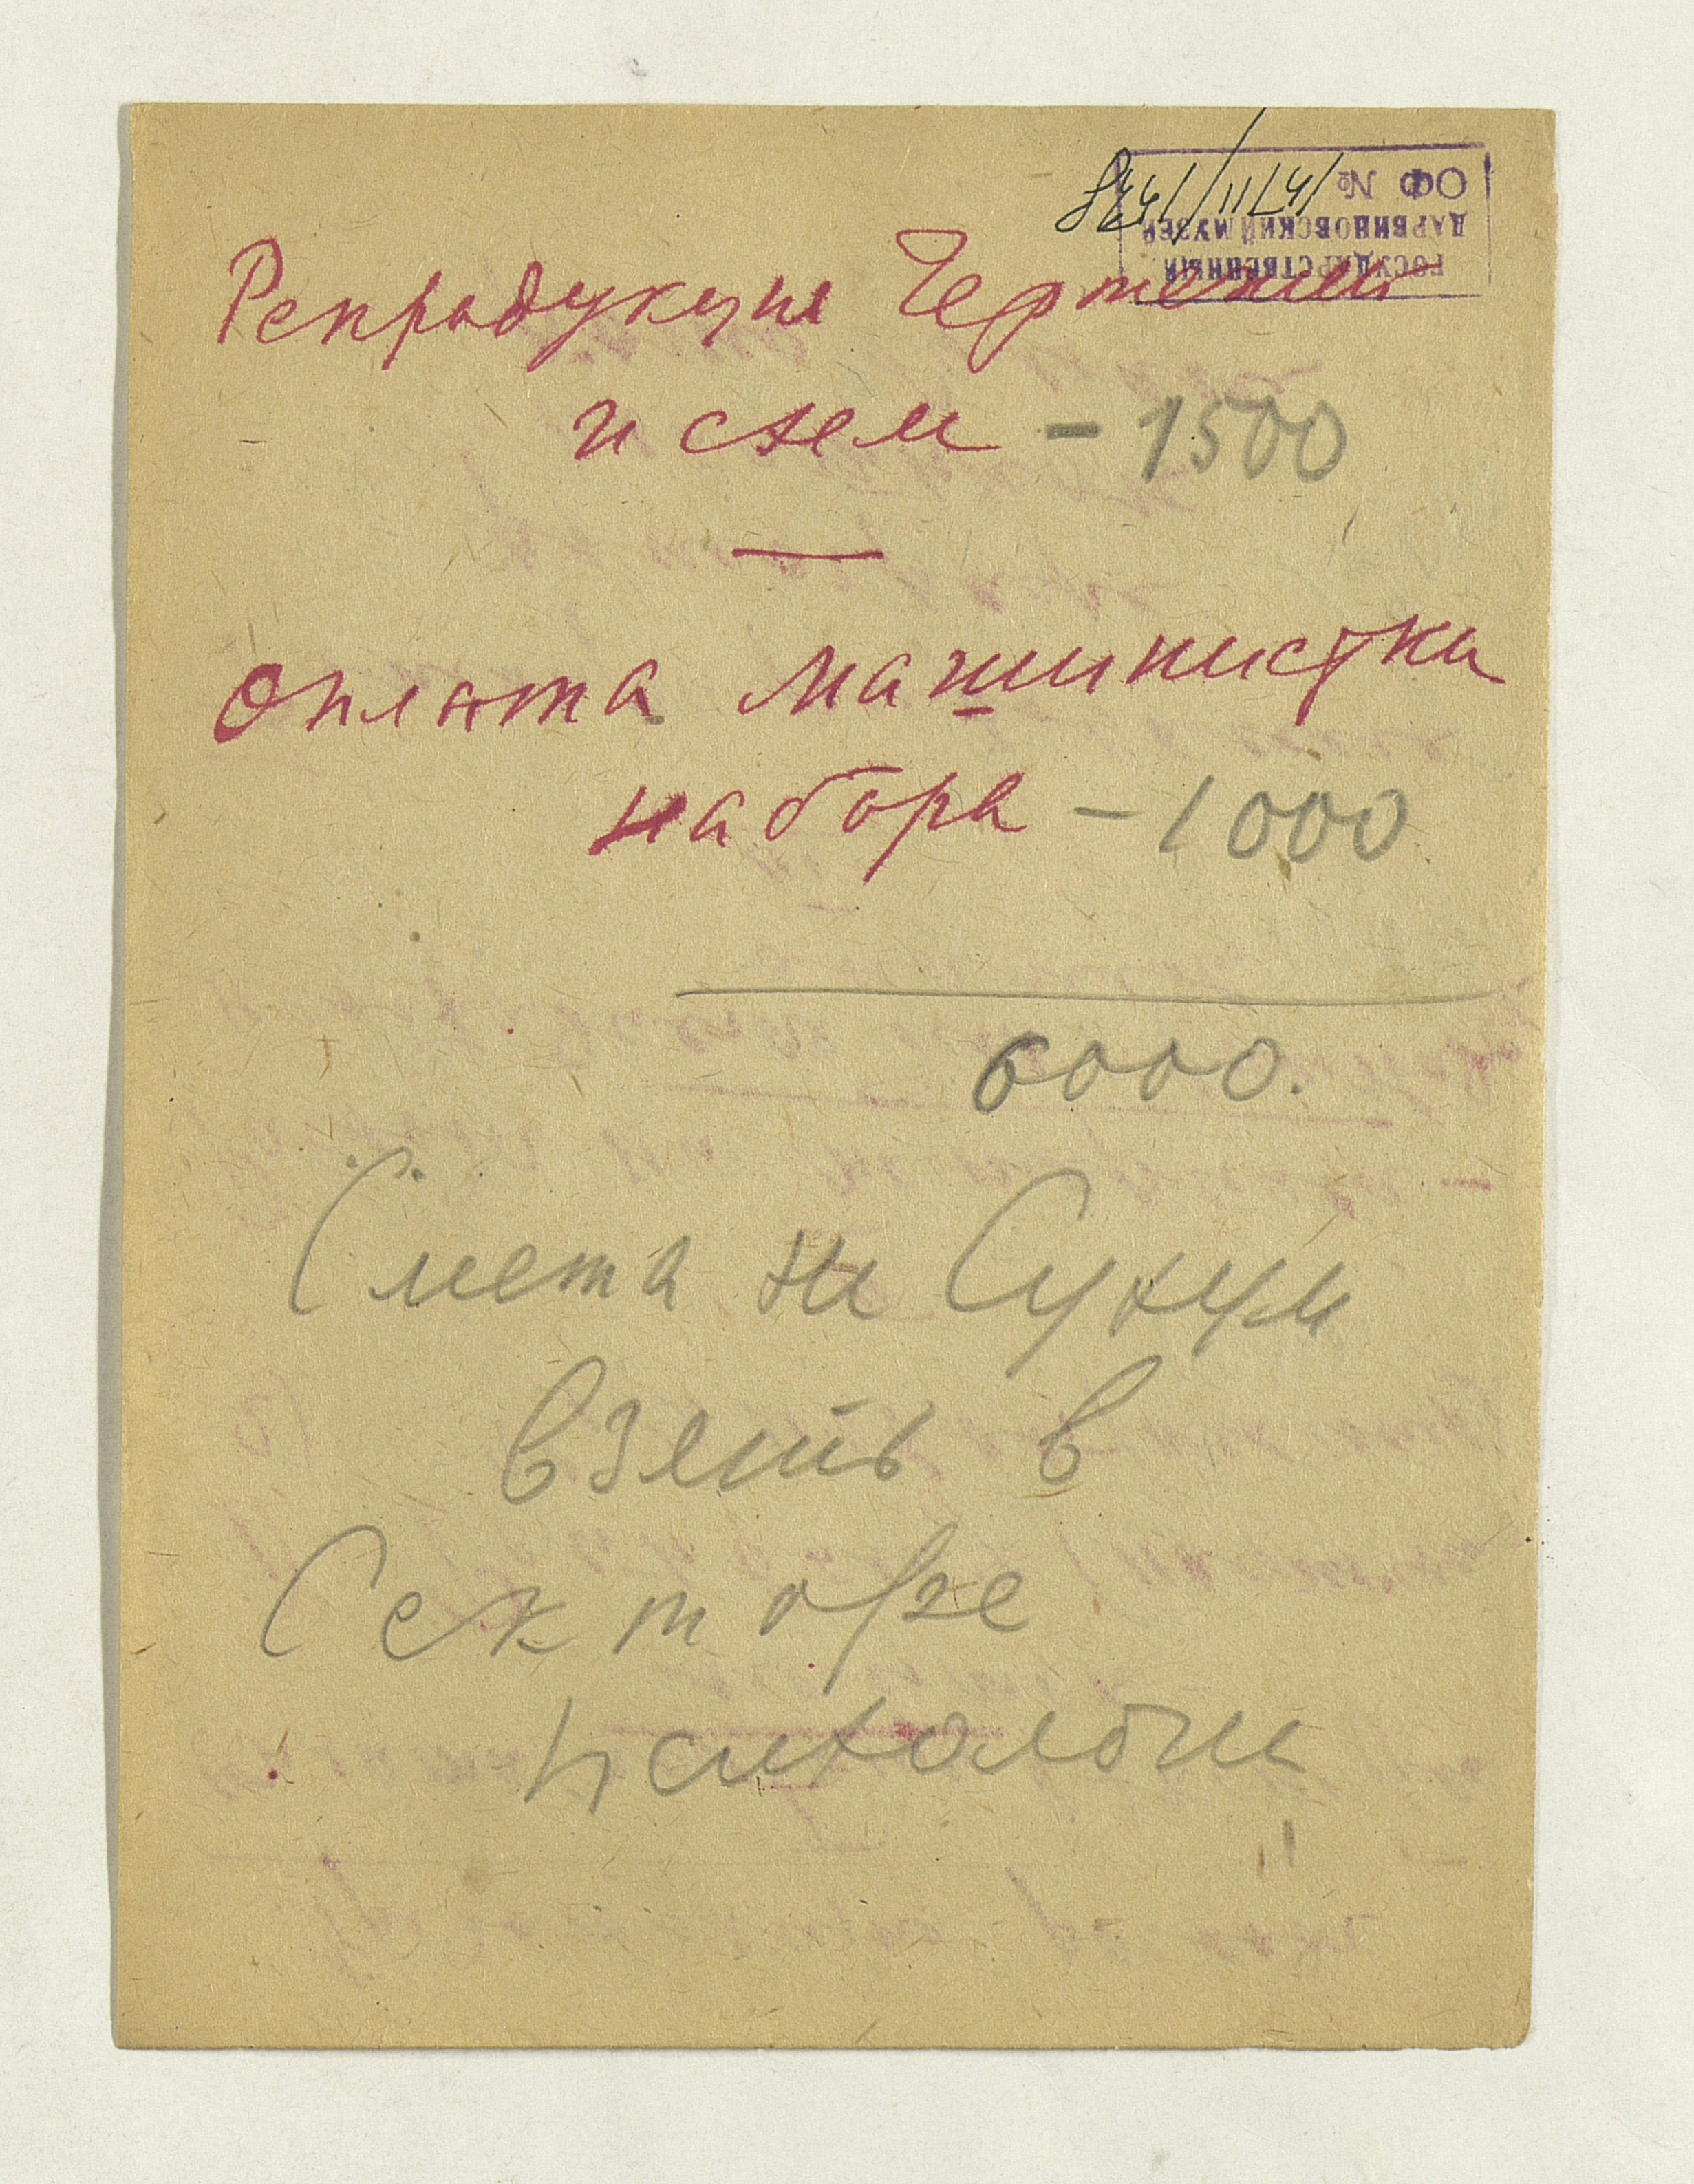 ГОСУДАРСТВЕННЫЙ
ДАРВИНОВСКИЙ МУЗЕЙ
ОФ №
Репродукция Чертежей
и схем - 1500
Оплата машинистки
набора - 1000
6000.
Смета на Сухум
взять в
Секторе
психологии